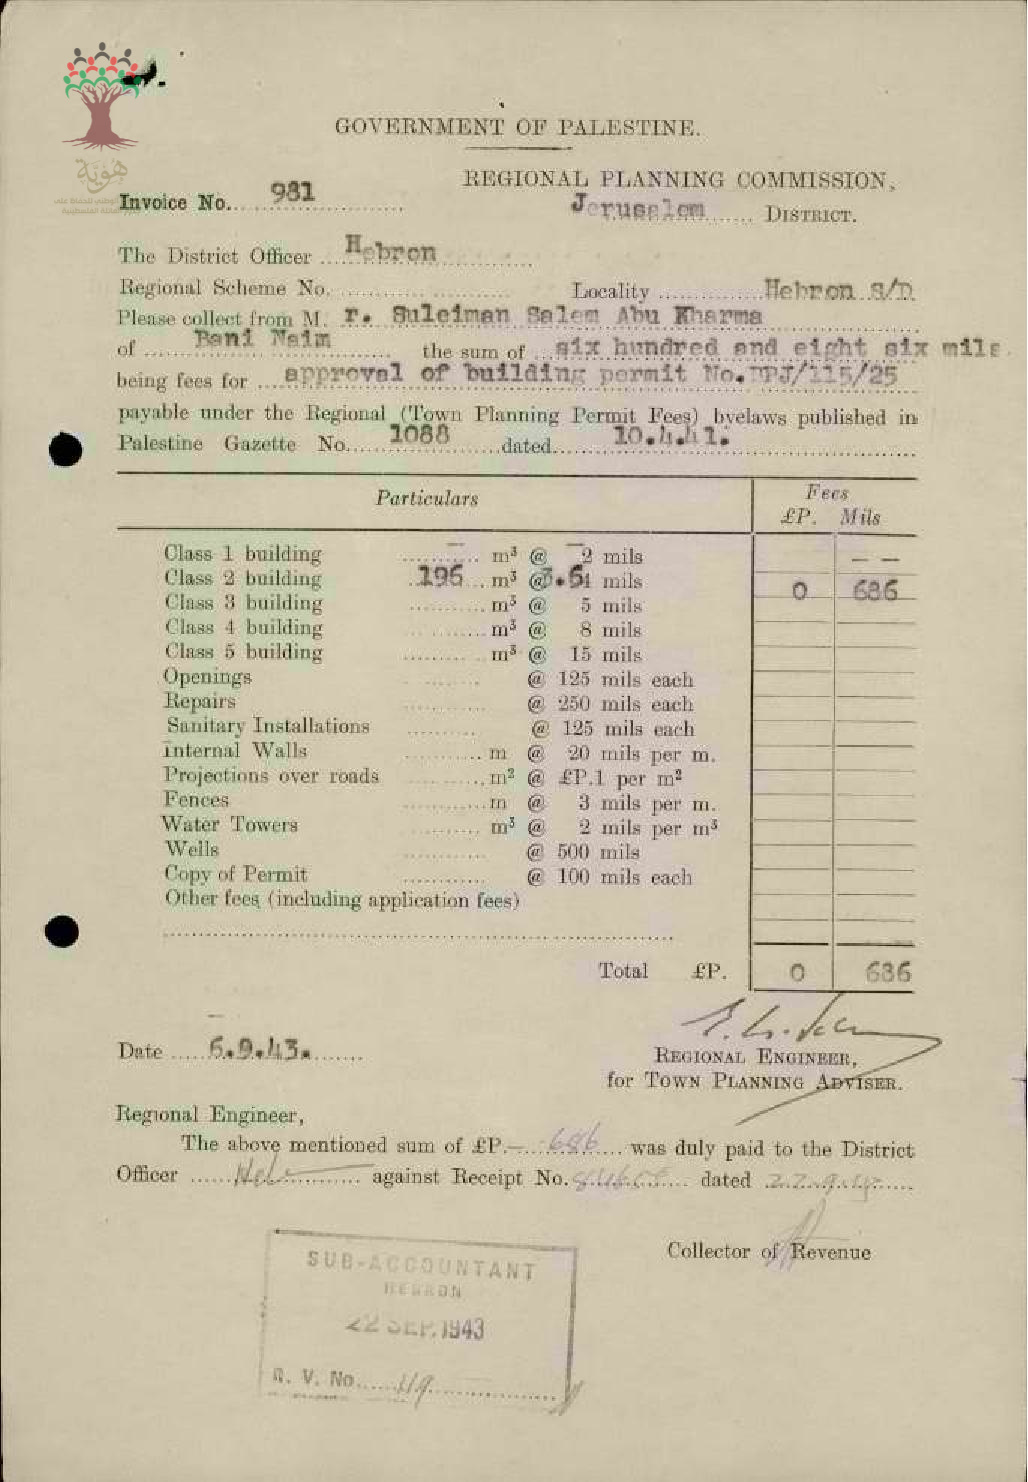 هُوِيَّة
GOVERNMENT OF PALESTINE.
REGIONAL PLANNING COMMISSION,
Invoice No. 981
Jerusalem DISTRICT.
The District Officer Hebron
Regional Scheme No. Locality Hebron S/D
Please collect from M. r. Suleiman Salem Abu Kharma
of Bani Naim the sum of six hundred and eight six mils
being fees for approval of building permit No. DPJ/115/25
payable under the Regional (Town Planning Permit Fees) byelaws published in
Palestine Gazette No. 1088 dated 10.4.41.
Particulars Fees
£P. Mils
Class 1 building – m³ @ 2 mils — —
Class 2 building 196 m³ @ 3.5 mils 0 686
Class 3 building m³ @ 5 mils
Class 4 building m³ @ 8 mils
Class 5 building m³ @ 15 mils
Openings @ 125 mils each
Repairs @ 250 mils each
Sanitary Installations @ 125 mils each
Internal Walls m @ 20 mils per m.
Projections over roads m² @ £P.1 per m²
Fences m @ 3 mils per m.
Water Towers m³ @ 2 mils per m³
Wells @ 500 mils
Copy of Permit @ 100 mils each
Other fees (including application fees)
Total £P. 0 686
Date 6.9.43.
REGIONAL ENGINEER,
for TOWN PLANNING ADVISER.
Regional Engineer,
The above mentioned sum of £P.— 686 was duly paid to the District
Officer against Receipt No. dated
Collector of Revenue
SUB-ACCOUNTANT
HEBRON
22 SEP. 1943
R. V. No. 119